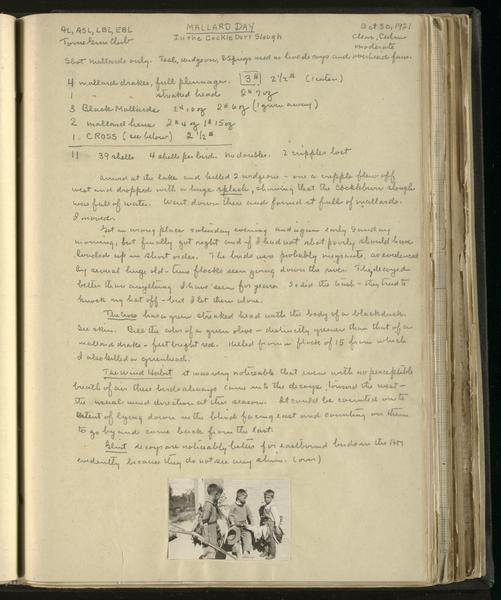 AL, ASL, LBL, EBL
MALLARD DAY
Oct 30, 1921
Tome Gun Club
In the Cockle Burr Slough
Clear, Calm
moderate
Shot mallards only. Teal, widgeon, & Sprigs used as live decoys and overhead fans.
4 mallard drakes, full plumage. 3# 2 1/2# (1 eaten)
1 " " streaked head 2# 7 oz
3 Black Mallards 2# 10 oz 2# 6 oz (1 given away)
2 mallard hens 2# 4 oz 1# 15 oz
1 CROSS (see below) 2 1/2#
11 39 shells 4 shells per bird. No doubles. 2 cripples lost
Arrived at the lake and killed 2 widgeons - one a cripple flew off
west and dropped with a large splash, showing that the Cockleburr slough
was full of water. Went down there and found it full of mallards.
I moved.
Got in wrong place Saturday evening and again early Sunday
morning, but finally got right and if I had not shot poorly should have
loaded up in short order. The birds were probably migrants, as evidenced
by several large old-time flocks seen going down the river. They decoyed
better than anything I have seen for years. So did the teal - they tried to
knock my hat off - but I let them alone.
The Cross has a green streaked head with the body of a black duck.
See skin. Bill the color of a green olive - distinctly greener than that of a
mallard drake - feet bright red. Killed from a flock of 15 from which
I also killed a greenhead.
The Wind Habit It was very noticeable that even with no perceptible
breath of air these birds always came into the decoys toward the west -
the usual wind direction at this season. It could be counted on to
extent of lying down in the blind facing east and counting on them
to go by and come back from the east.
Glint decoys are noticeably better for eastbound birds in the AM
evidently because they do not see any shine. (over)